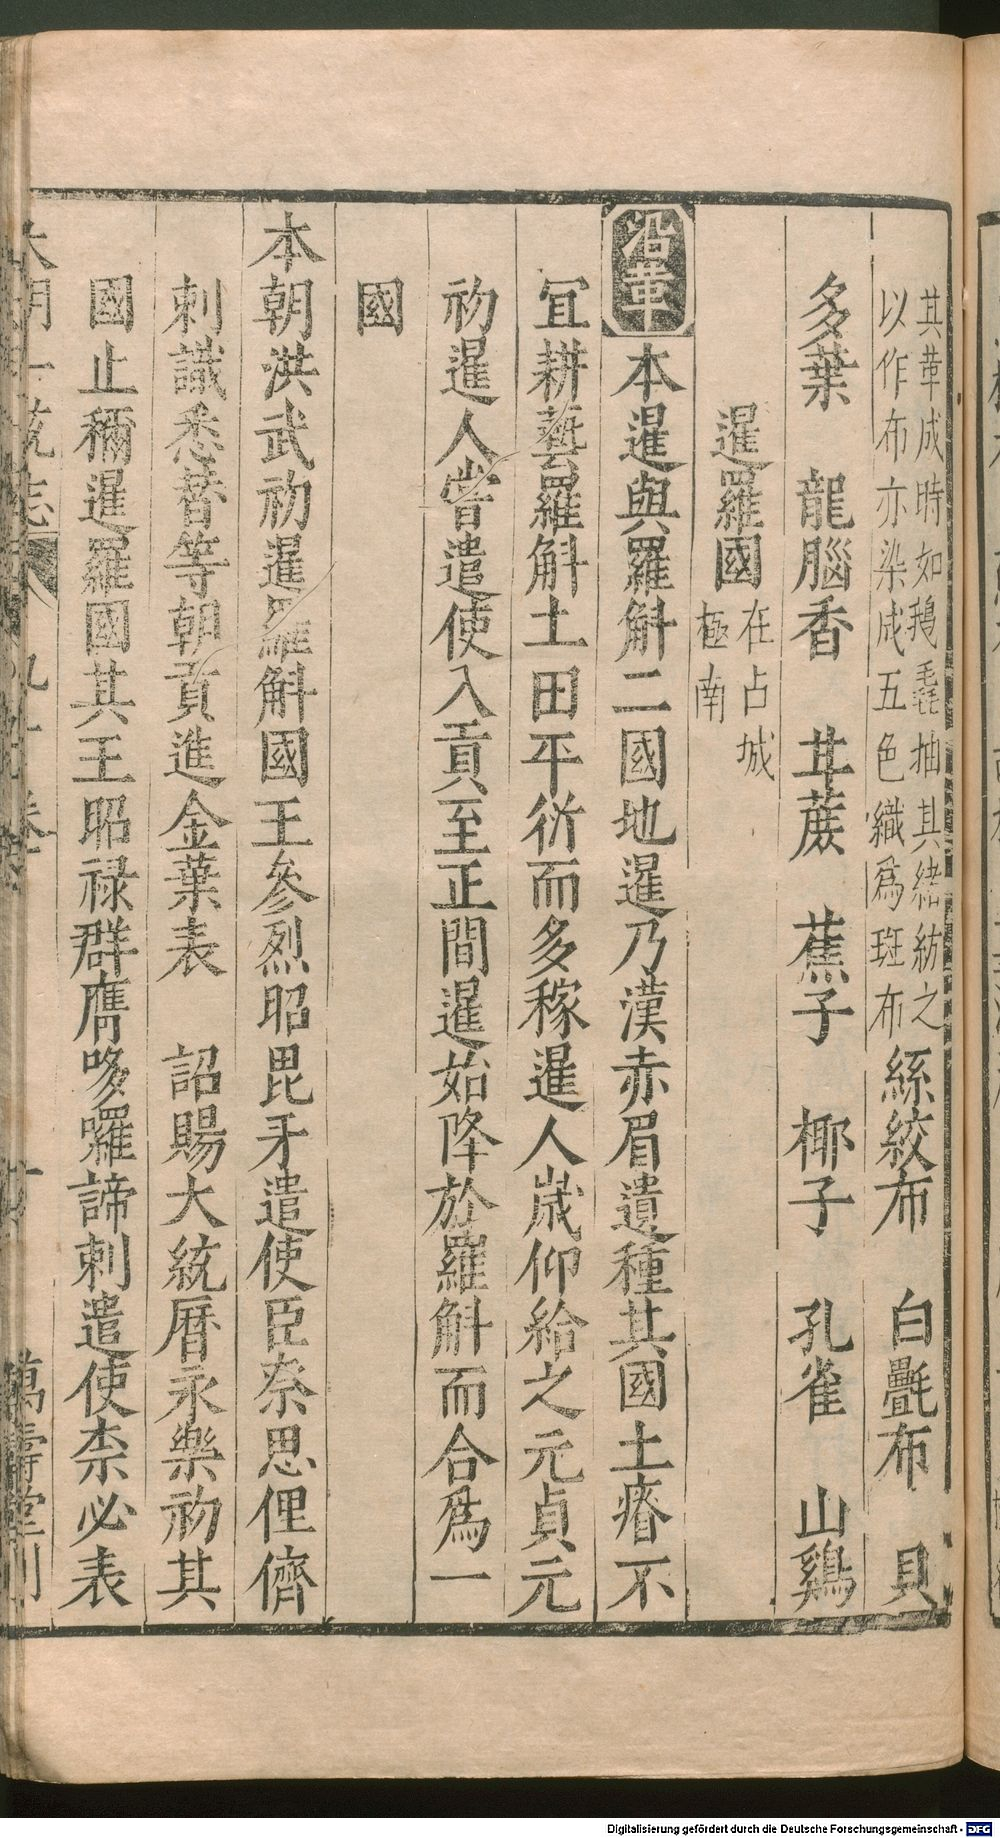 其華成時如鵝毳抽其緒紡之
以作布亦染成五色織爲斑布
絲絞布 白疊布 貝
多葉 龍腦香 甘蔗 蕉子 椰子 孔雀 山鷄
暹羅國
在占城
極南
沿革 本暹與羅斛二國地暹乃漢赤眉遺種其國土瘠不
宜耕藝羅斛土田平衍而多稼暹人嵗仰給之元貞元
初暹人嘗遣使入貢至正間暹始降於羅斛而合爲一
國
本朝洪武初暹羅斛國王參烈昭毘牙遣使臣奈思俚儕
刺識悉替等朝貢進金葉表 詔賜大統曆永樂初其
國止稱暹羅國其王昭禄群膺哆囉諦刺遣使柰必表
大明一統志 九十卷 萬壽堂刊
Digitalisierung gefördert durch die Deutsche Forschungsgemeinschaft - DFG